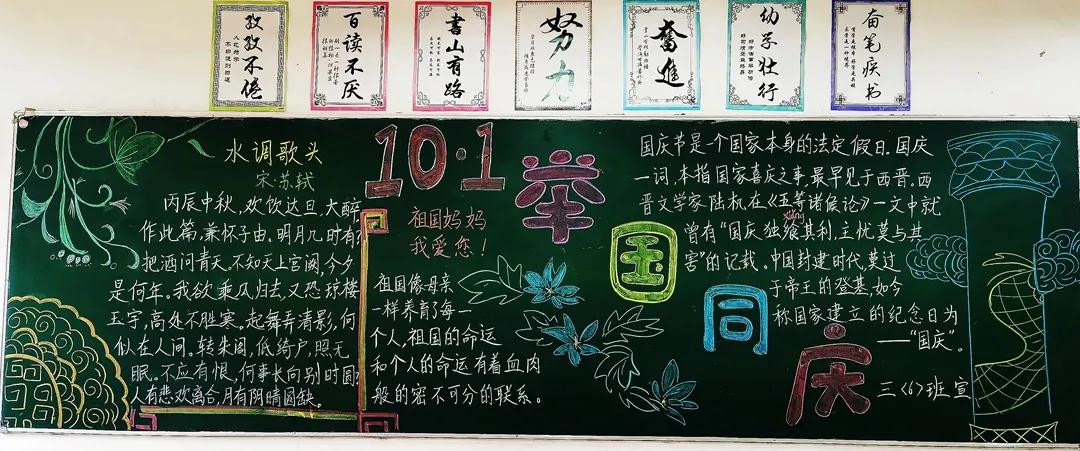 孜孜不倦
百读不厌
书山有路
努力
奋进
幼学壮行
奋笔疾书
水调歌头
宋·苏轼
丙辰中秋,欢饮达旦,大醉
作此篇,兼怀子由。明月几时有?
把酒问青天,不知天上宫阙,今夕
是何年。我欲乘风归去,又恐琼楼
玉宇,高处不胜寒。起舞弄清影,何
似在人间。转朱阁,低绮户,照无
眠。不应有恨,何事长向别时圆?
人有悲欢离合,月有阴晴圆缺。
10·1
祖国妈妈
我爱您!
祖国像母亲
一样养育了每一
个人,祖国的命运
和个人的命运有着血肉
般的密不可分的联系。
举
国
同
庆
国庆节是一个国家本身的法定假日。国庆
一词,本指国家喜庆之事最早见于西晋。西
晋文学家陆机在《五等诸侯论》一文中就
xiǎng
曾有“国庆独飨其利,主忧莫与其
害”的记载。中国封建时代,莫过
于帝王的登基,如今
称国家建立的纪念日为
——“国庆”。
三〈6〉班宣